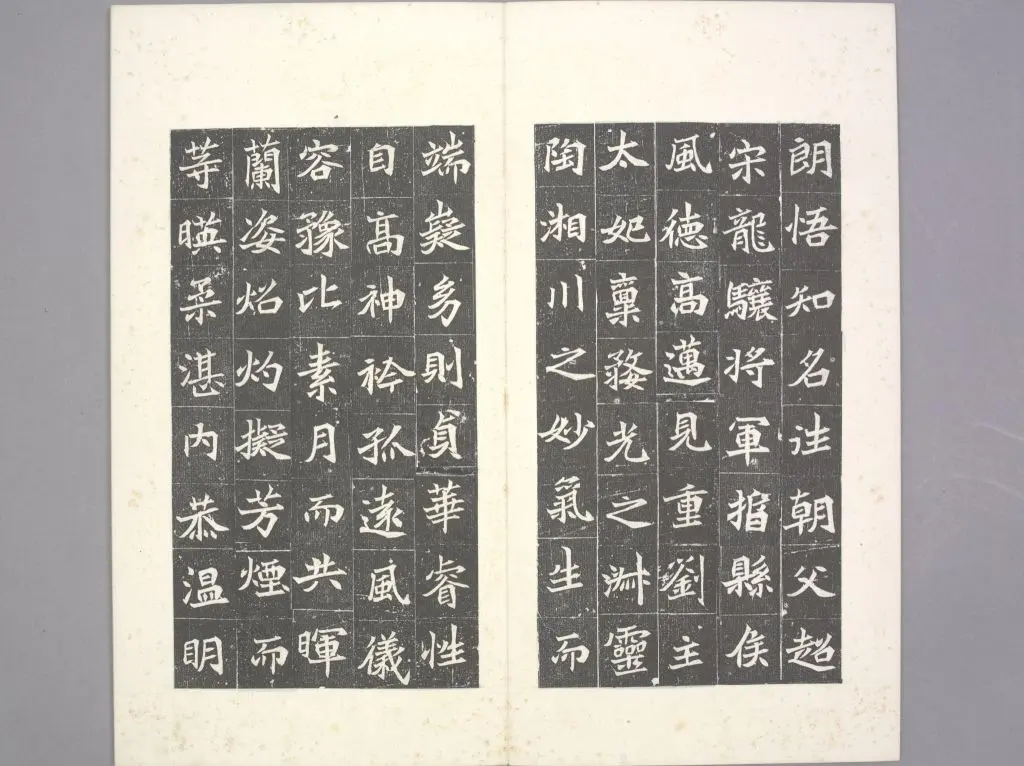 朗悟知名往朝父超
宋龍驤將軍揟縣侯
風德高邁見重劉主
太妃稟婺光之淑靈
陶湘川之妙氣生而
端嶷幼則貞華睿性
自高神衿孤遠風儀
容豫比素月而共暉
蘭姿炤灼擬芳煙而
等暎柔湛內恭溫明